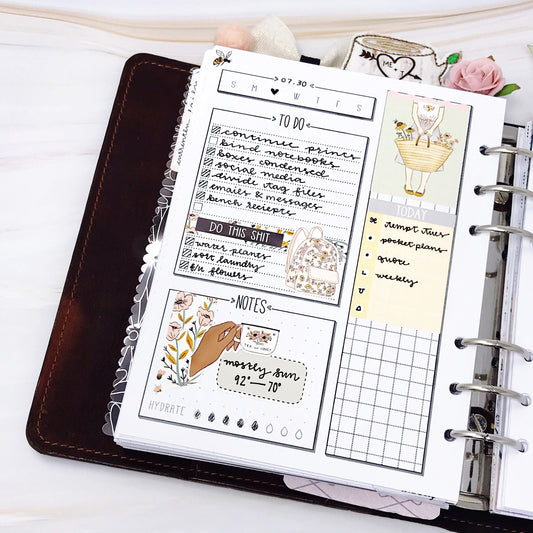 07.30
S M ♥ W T F S
TO DO
continue princs
bind notebooks
boxes condensed
social media
divide tag files
emails & messages
bench reciepts
DO THIS SHIT
water plants
sort laundry
f/u flowers
NOTES
mostly sun
92°—70°
HYDRATE
TODAY
tempt tues
pocket plans
quote
weekly
ME + T